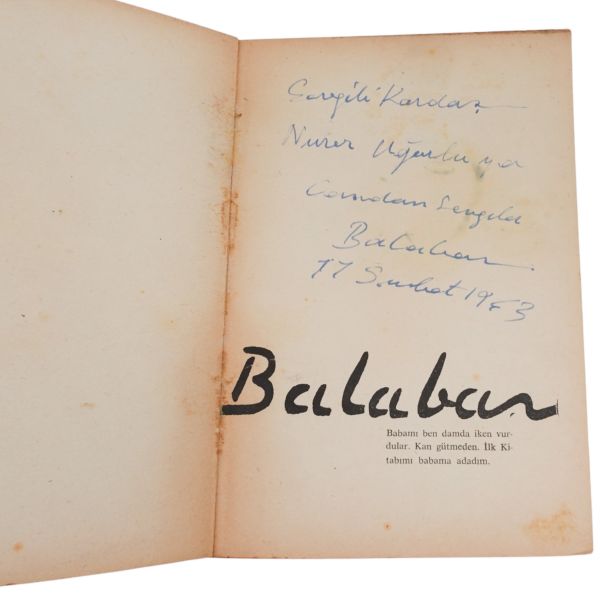 Sevgili Kardaş
Nurer Uğurlu ya
Candan Sevgile
Balaban
17 Şubat 1963
Balaban
Babamı ben damda iken vur-
dular. Kan gütmeden. İlk Ki-
tabımı babama adadım.